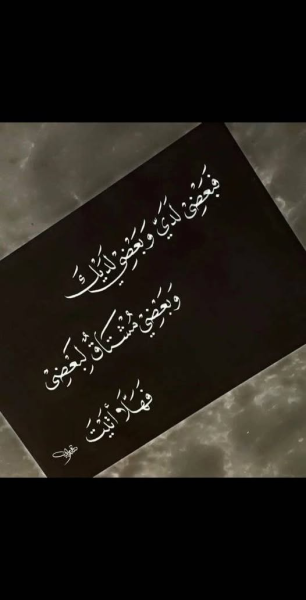 فَبَعْضِي لَدَيَّ وَبَعْضِي لَدَيْكَ
وَبَعْضِي مُشْتَاقٌ لِبَعْضِي
فَهَلَّا أَتَيْتَ